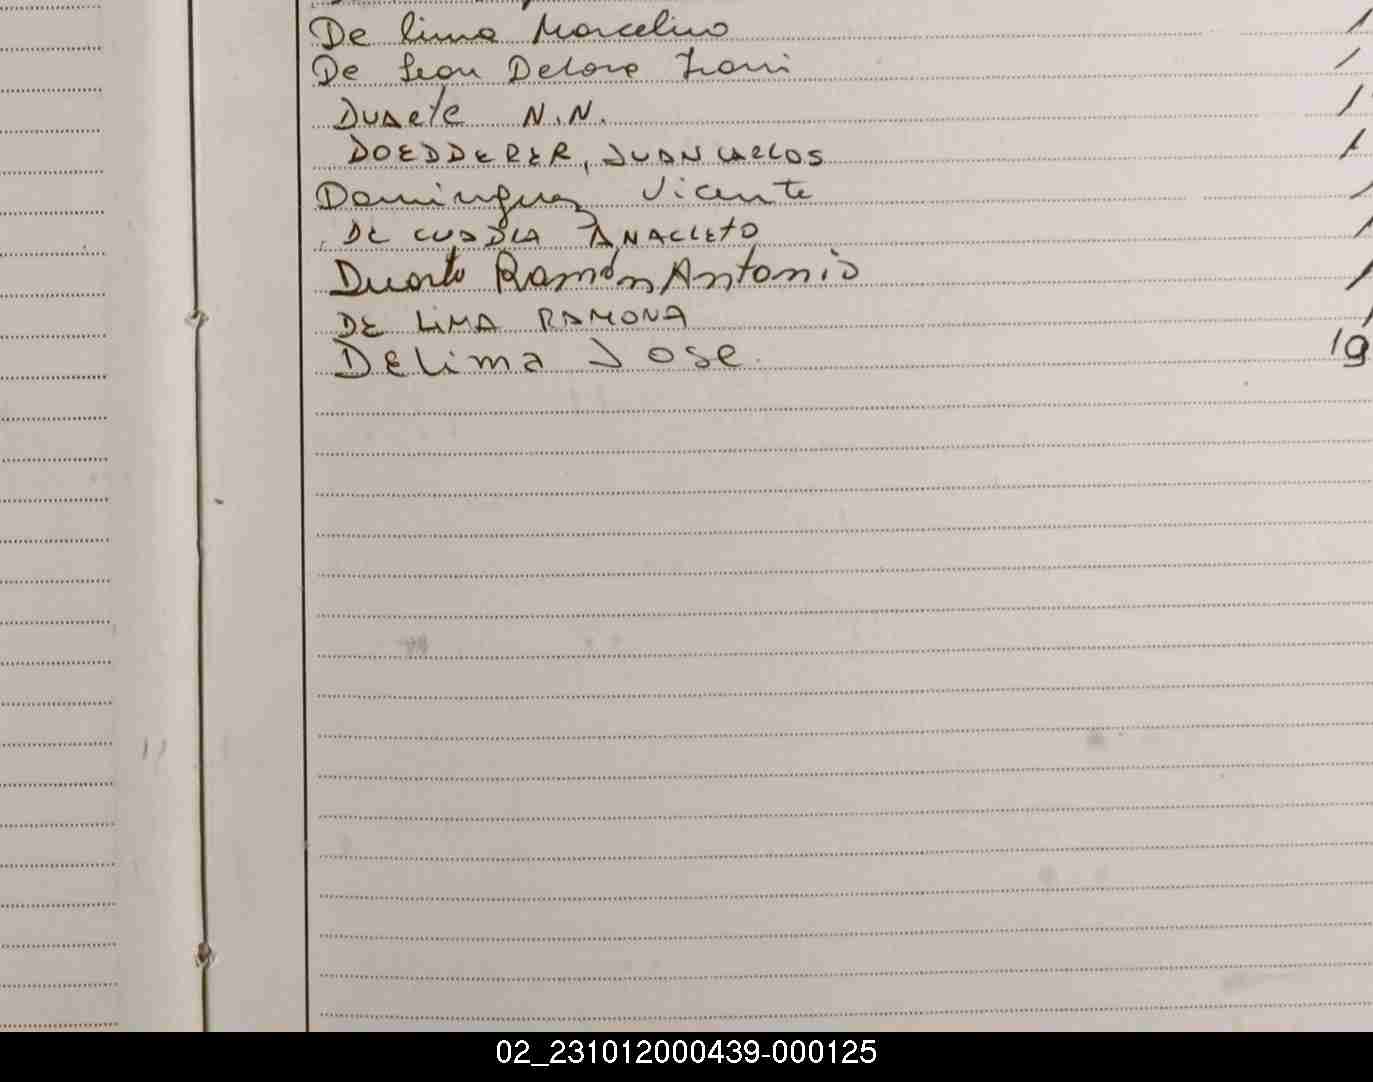 De lima Marcelino 1
De Leon Delore Irani 1
Duarte N.N. 1
DOEDDERER, JUAN CARLOS 1
Dominguez Vicente 1
DE CUADLA ANACLETO 1
Duarte Ramón Antonio 1
DE LIMA RAMONA 1
DELima Jose. 19
02_231012000439-000125